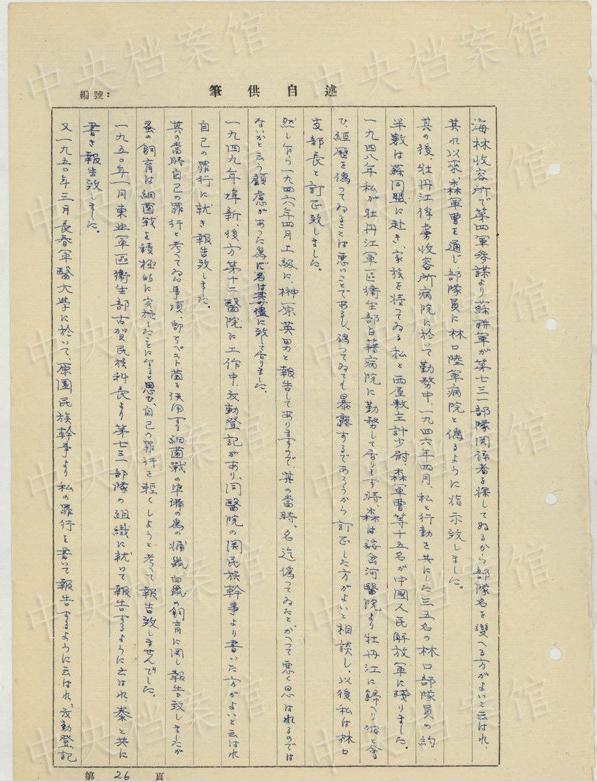 中央档案馆
編號：
筆供自述
海林收容所で第四軍参謀より蘇聯軍が第七三一部隊関係者を探してゐるから部隊名を変へる方がよいと云はれ
其れ以来、森軍曹を通じ部隊員に林口陸軍病院と偽るように指示致しました。
其の後、牡丹江俘虜收容所病院に於いて勤務中、一九四六年四月、私と行動を共にした三五名の林口部隊員の約
半数は蘇同盟に赴き、家族を持てゐる私と西屋敷主計少尉森軍曹等十五名が中國人民解放軍に残りました。
一九四八年私が牡丹江軍区衛生部日籍病院に勤務して居ります時、森は 河醫院より牡丹江に歸へり彼と會
ひ、経歴を偽ってゐることは悪いことであるし、偽ってゐても暴露するであろうから訂正した方がよいと相談し、以後私は林口
支部長と訂正致しました。
然しながら一九四六年四月上級に榊原英男と報告してありますので其の當時、名迄偽ってゐたと、かへって悪く思はれるのでは
ないかと云う顧慮があった為に名は其の儘に致して居りました。
一九四九年阜新、後方第十二醫院に工作中、反動登記があり、同醫院の 民族幹事より書いた方がよいと云はれ
自己の罪行に就き報告致しました。
其の當時自己の罪行と考へてゐる事項、即ちペスト菌を使用す細菌戦の準備の為の捕鼠、白鼠の飼育に関し報告致しましたが
蚤の飼育は細菌戦を積極的に実施したことになると思ひ、自己の罪行を軽くしようと考へて報告致しませんでした。
一九五〇年一月東北軍区衛生部古賀民族科長より第七三一部隊の組織に就いて報告するように云はれ、秦と共に
書き報告致しました。
又一九五〇年三月長春軍醫大學に於いて、原園民族幹事より私の罪行を書いて報告するように云はれ、反動登記
第 26 頁